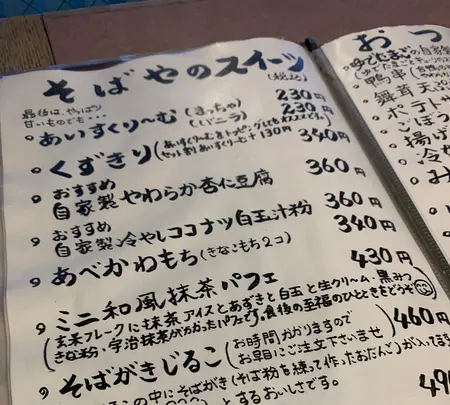 そばやのスイーツ
(税込)
最後は、やっぱり
甘いものでも・・・
あいすくり〜む (まっちゃ) 230円
(バニラ) 230円
くずきり (あいすくり〜むをトッピングしてもオススメです。
セット割 あいすくり〜む+130円 340円
おすすめ
自家製 やわらか杏仁豆腐 360円
おすすめ
自家製 冷やしココナツ白玉汁粉 360円
あべかわもち (きなこもち2コ) 340円
ミニ和風抹茶パフェ 430円
(玄米フレークに抹茶アイスとあずきと白玉と生クリーム・黒みつ
きな粉、宇治抹茶がかかったパフェです。食後の至福のひとときをどうぞ
そばがきじるこ (お時間かかりますので
お早目にご注文下さいませ) 460円
の中にそばがき(そば粉を練って作ったおだんご)が入って
とするおいしさです。
490
おつ
ゆでたまご
鴨串
舞茸天ぷ
ポテト
ごぼう
揚げ
冷や